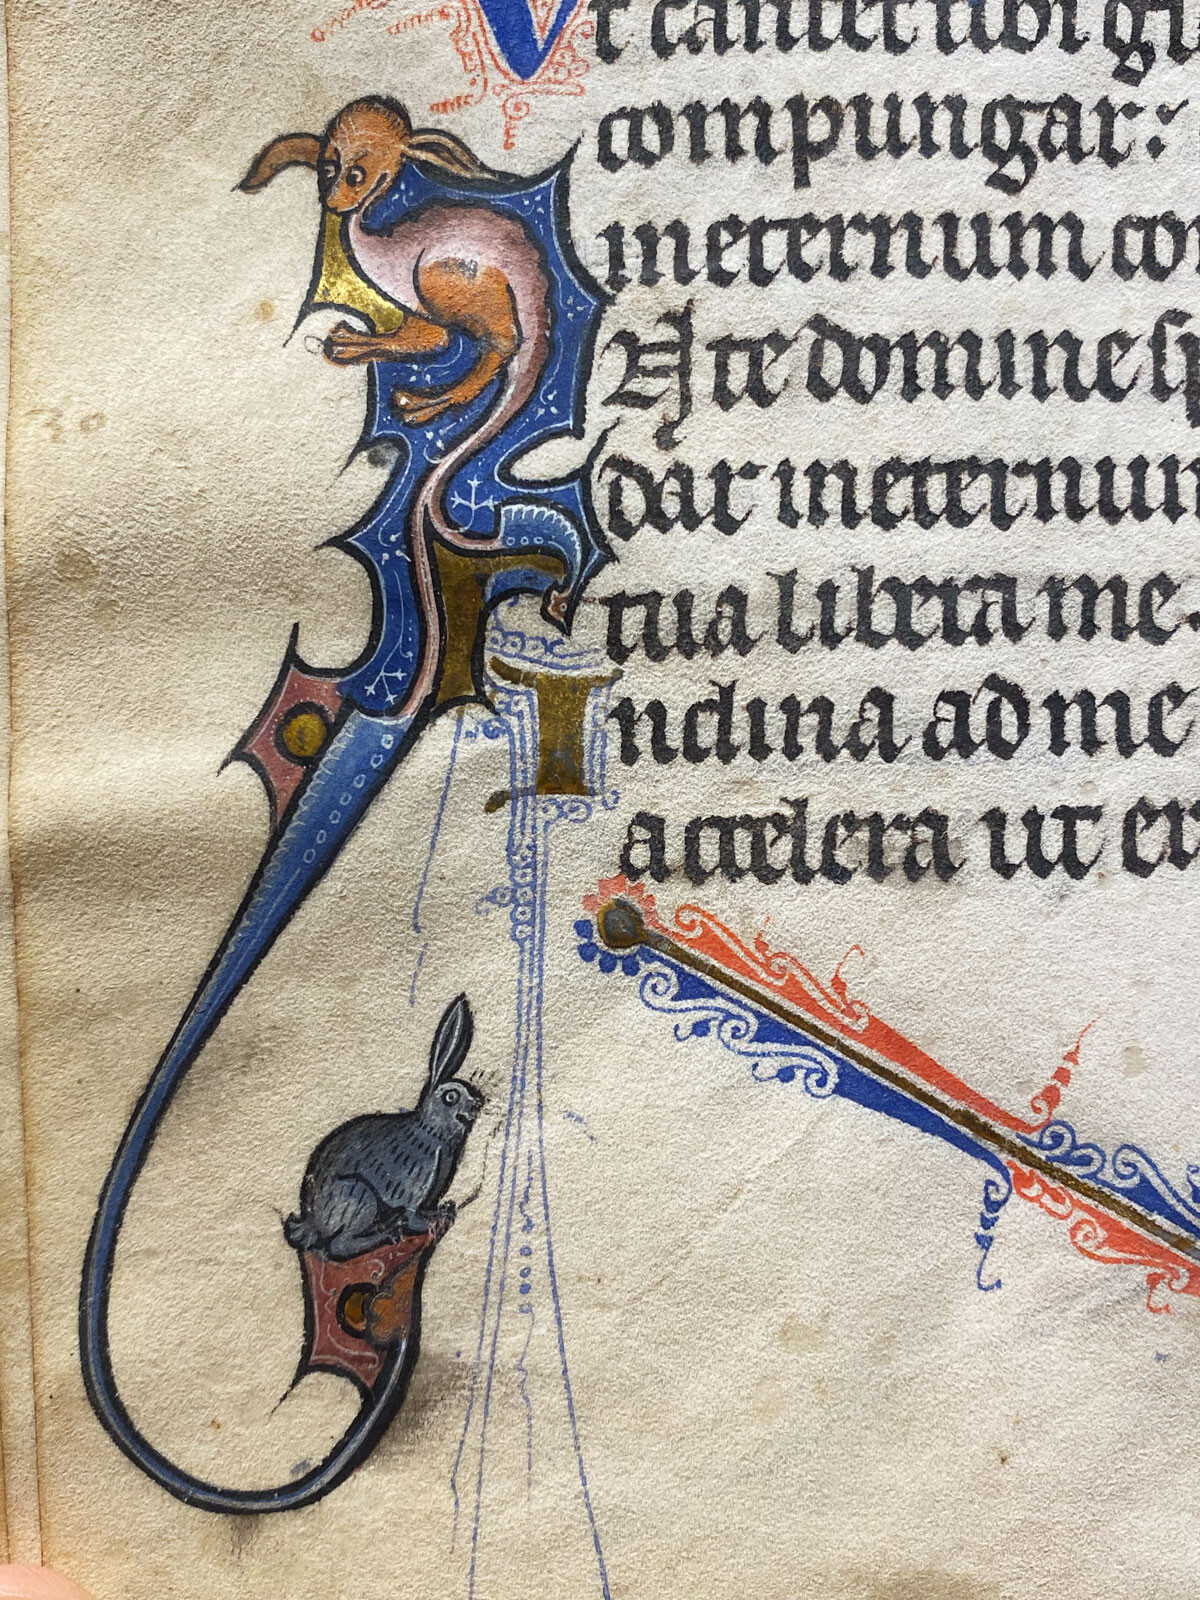 Vt cantet tibi
compungar:
ineternum
A te domine
dar ineternum
tua libera me.
Inclina ad me
accelera ut